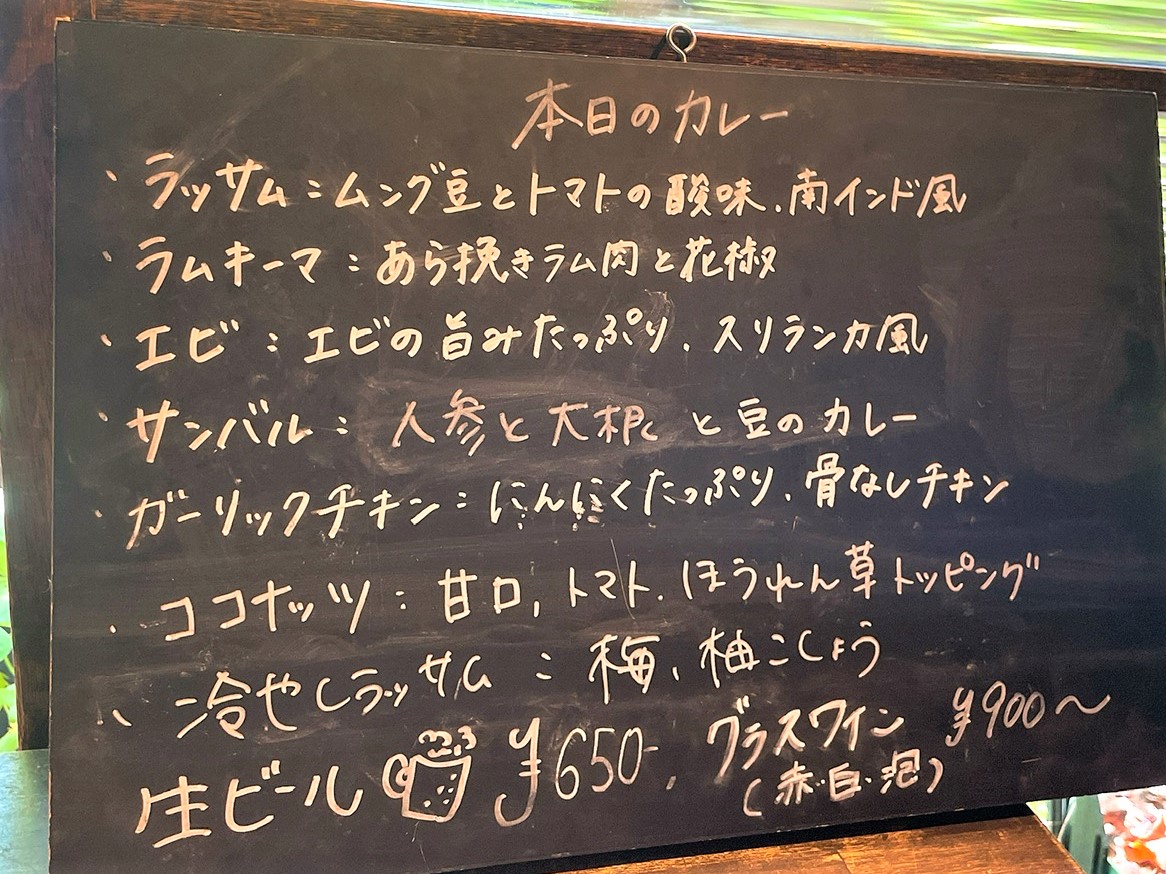 本日のカレー
・ラッサム：ムング豆とトマトの酸味、南インド風
・ラムキーマ：あら挽きラム肉と花椒
・エビ：エビの旨みたっぷり、スリランカ風
・サンバル：人参と大根と豆のカレー
・ガーリックチキン：にんにくたっぷり、骨なしチキン
・ココナッツ：甘口、トマト、ほうれん草トッピング
・冷やしラッサム：梅、柚こしょう
生ビール ¥650-、グラスワイン ¥900〜
（赤・白・泡）